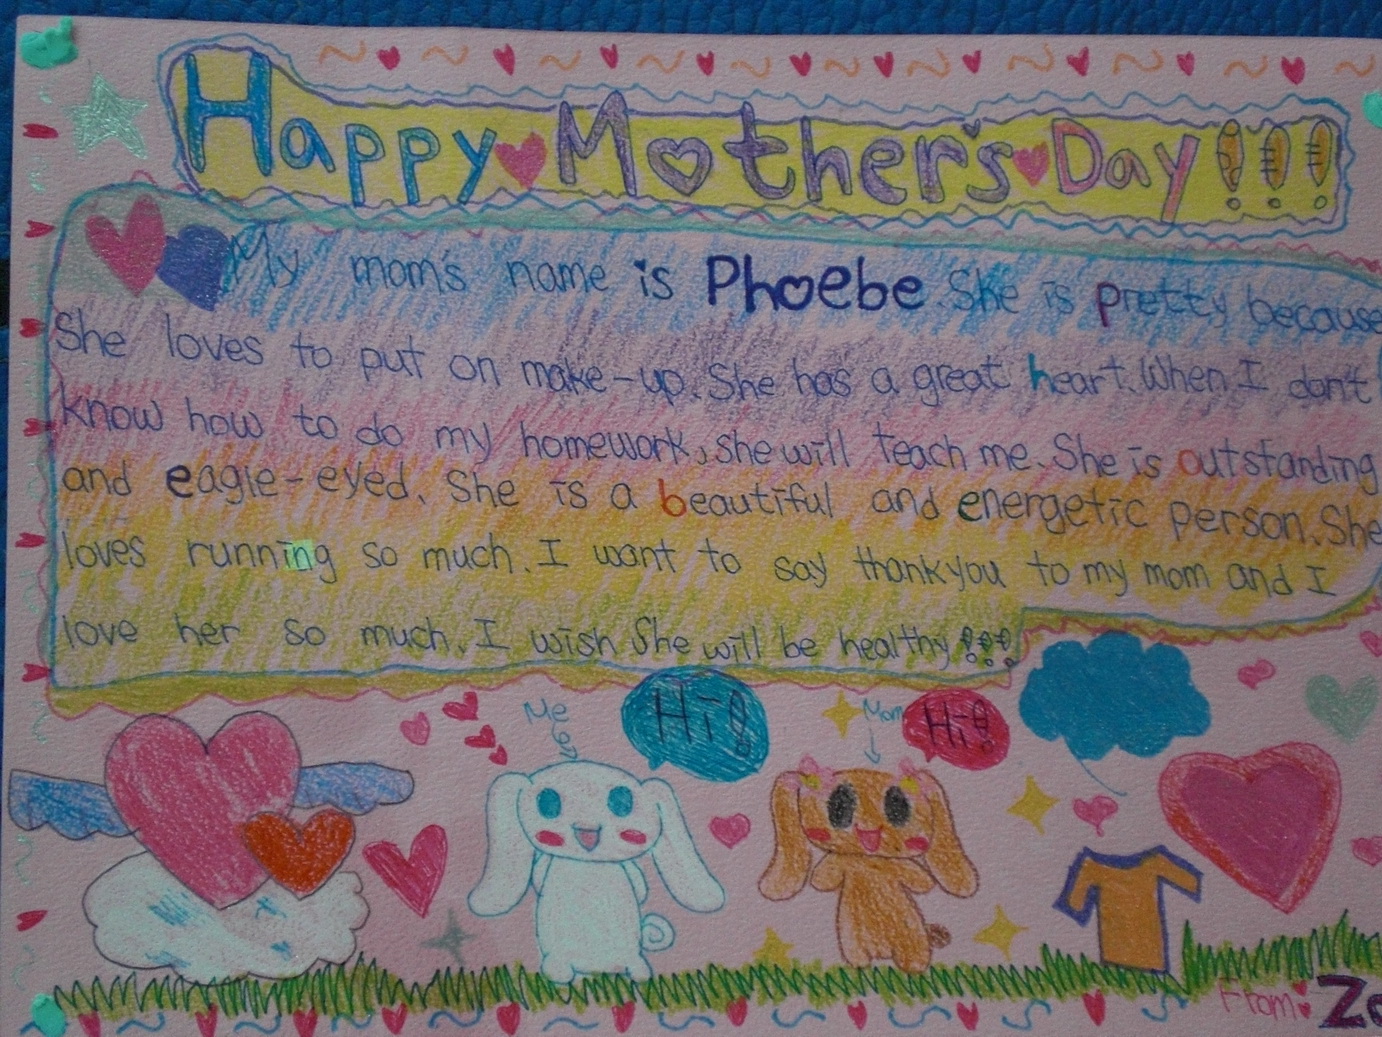 Happy Mother's Day!!!
My mom's name is Phoebe. She is pretty because
She loves to put on make-up. She has a great heart. When I don't
know how to do my homework, she will teach me. She is outstanding
and eagle-eyed. She is a beautiful and energetic person. She
loves running so much. I want to say thank you to my mom and I
love her so much. I wish She will be healthy!!!
Me
Hi!
Mom
Hi!
From